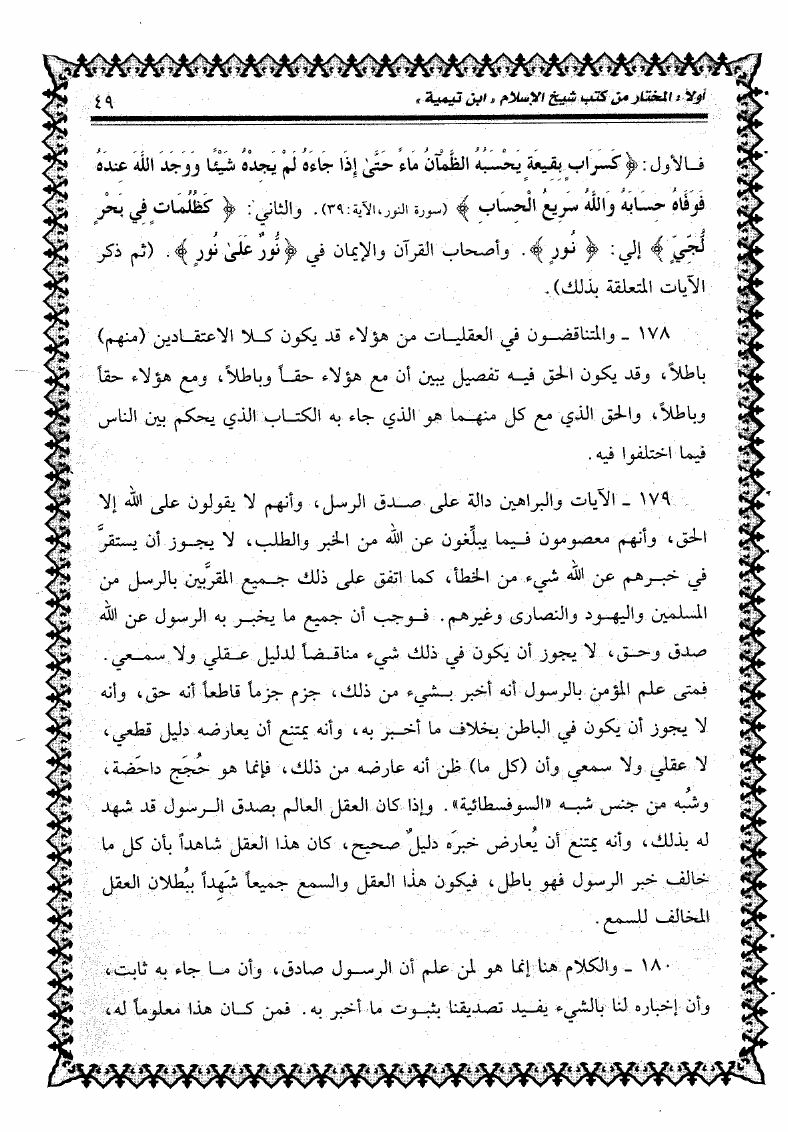 أولا: المختار من كتب شيخ الإسلام « ابن تيمية »
٤٩
فـالأول: ﴿ كَسَرَابٍ بِقِيعَةٍ يَحْسَبُهُ الظَّمْآنُ مَاءً حَتَّىٰ إِذَا جَاءَهُ لَمْ يَجِدْهُ شَيْئًا وَوَجَدَ اللَّهَ عِندَهُ
فَوَفَّاهُ حِسَابَهُ وَاللَّهُ سَرِيعُ الْحِسَابِ ﴾ (سورة النور، الآية: ٣٩). والثاني: ﴿ كَظُلُمَاتٍ فِي بَحْرٍ
لُّجِّيٍّ ﴾ إلي: ﴿ نُورٍ ﴾. وأصحاب القرآن والإيمان في ﴿ نُّورٌ عَلَىٰ نُورٍ ﴾. (ثم ذكر
الآيات المتعلقة بذلك).
١٧٨ ـ والمتناقضـون في العقليـات من هؤلاء قد يكون كـلا الاعتقـادين (منهم)
باطلاً، وقد يكون الحق فيـه تفصيل يبين أن مع هؤلاء حقـاً وباطلاً، ومع هؤلاء حقاً
وباطلاً، والحق الذي مع كل منهـما هو الذي جاء به الكتـاب الذي يحكم بين الناس
فيما اختلفوا فيه.
١٧٩ ـ الآيات والبراهين دالة على صـدق الرسل، وأنهم لا يقولون على الله إلا
الحق، وأنهم معصومون فـيما يبلِّغون عن الله من الخبر والطلب، لا يجـوز أن يستقرَّ
في خبـرهم عن الله شيء من الخطأ، كما اتفق على ذلك جـميع المقرَّبين بالرسل من
المسلمين واليهـود والنصارى وغيرهم. فـوجب أن جميع ما يخبـر به الرسول عن الله
صدق وحـق، لا يجوز أن يكون في ذلك شيء مناقـضاً لدليل عـقلي ولا سمـعي.
فمتى علم المؤمن بالرسول أنه أخبر بـشيء من ذلك، جزم جزماً قاطعاً أنه حق، وأنه
لا يجوز أن يكون في الباطن بخلاف ما أخـبر به، وأنه يمتنع أن يعارضه دليل قطعي،
لا عقلي ولا سمعي وأن (كل ما) ظن أنه عارضه من ذلك، فإنما هو حُجَج داحَضة،
وشُبه من جنس شبـه «السوفسطائية». وإذا كان العقل العالم بصدق الـرسول قد شهد
له بذلك، وأنه يمتنع أن يُعارض خبرَه دليلٌ صحيح، كان هذا العقل شاهداً بأن كل ما
خالف خبر الرسول فهو باطل، فيكون هذا العقل والسمع جميعاً شَهِداً ببُطلان العقل
المخالف للسمع.
١٨٠ ـ والكلام هنا إنما هو لمن علم أن الرسـول صادق، وأن مـا جاء به ثابت،
وأن إخباره لنا بالشيء يفـيد تصديقنا بثبوت ما أخبر به. فمن كـان هذا معلوماً له،